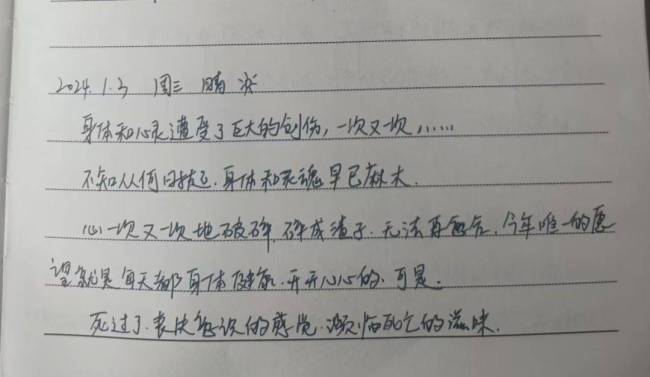 2024.1.3 周三 晴 冷
身体和心灵遭受了巨大的创伤,一次又一次,……
不知从何日起,身体和灵魂早已麻木.
心一次又一次地破碎,碎成渣子.无法再愈合.今年唯一的愿
望就是每天都身体健康.开开心心的.可是.
死过了.表决的感觉.濒临死亡的滋味.